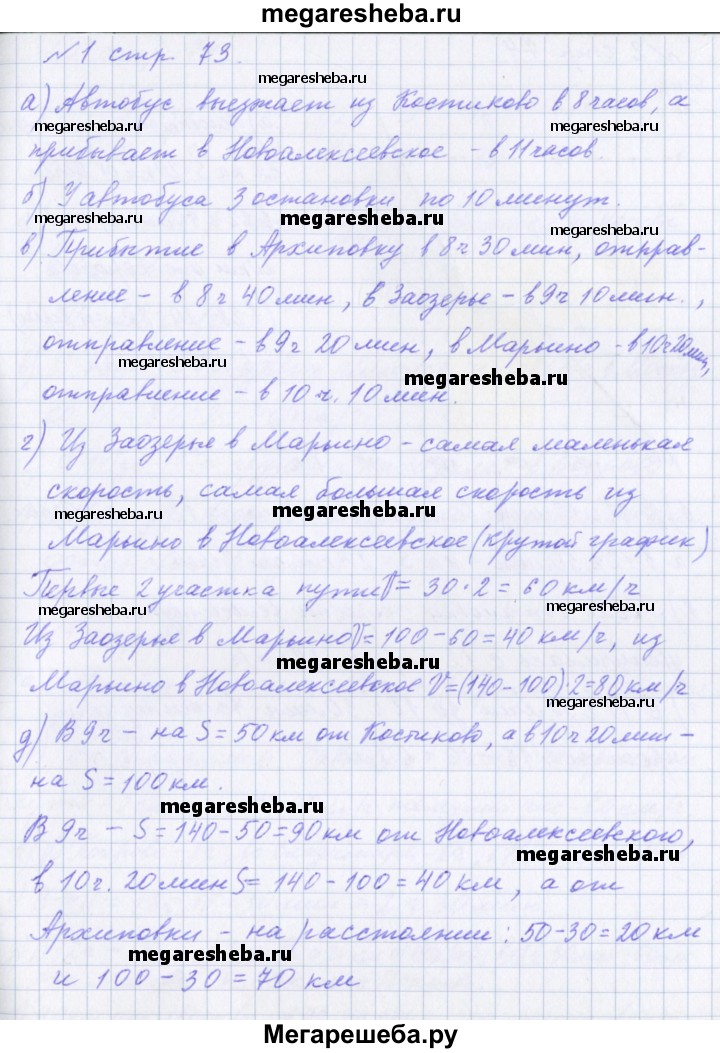 megaresheba.ru
№1 стр. 73.
megaresheba.ru
а) Автобус выезжает из Костиково в 8 часов, а
megaresheba.ru megaresheba.ru
прибывает в Новоалексеевское - в 11 часов.
б) У автобуса 3 остановки по 10 минут.
megaresheba.ru megaresheba.ru megaresheba.ru
в) Прибытие в Архиповку в 8 ч 30 мин, отправ-
megaresheba.ru
ление - в 8 ч 40 мин, в Заозерье - в 9 ч 10 мин.,
megaresheba.ru
отправление - в 9 ч 20 мин, в Марьино - в 10 ч 20 мин,
megaresheba.ru megaresheba.ru
отправление - в 10 ч. 10 мин.
г) Из Заозерья в Марьино - самая маленькая
скорость, самая большая скорость из
megaresheba.ru megaresheba.ru megaresheba.ru
Марьино в Новоалексеевское (крутой график)
Первые 2 участка пути V = 30 · 2 = 60 км/ч
megaresheba.ru megaresheba.ru
Из Заозерья в Марьино V = 100 - 60 = 40 км/ч, из
megaresheba.ru
Марьино в Новоалексеевское V = (140 - 100) · 2 = 80 км/ч
megaresheba.ru megaresheba.ru
д) В 9 ч - на S = 50 км от Костиково, а в 10 ч 20 мин -
на S = 100 км.
megaresheba.ru
В 9 ч - S = 140 - 50 = 90 км от Новоалексеевского,
megaresheba.ru
в 10 ч. 20 мин S = 140 - 100 = 40 км, а от
Архиповки - на расстоянии: 50 - 30 = 20 км
megaresheba.ru megaresheba.ru
и 100 - 30 = 70 км
Мегарешеба.ру